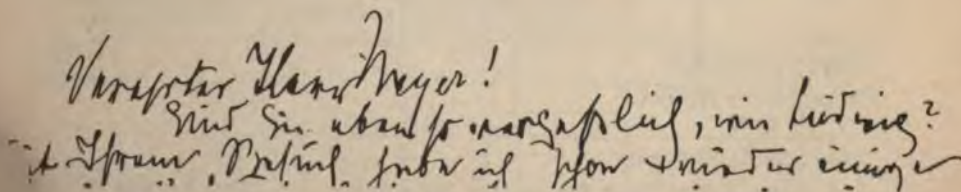 Verehrter Herr Meyer!
Sind Sie eben so vergeßlich, wie Ludwig?
it Ihrem Besuch habe ich schon wieder einige